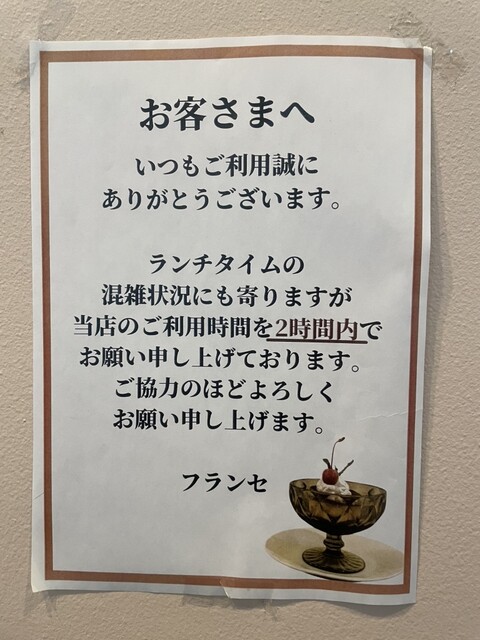 お客さまへ
いつもご利用誠に
ありがとうございます。
ランチタイムの
混雑状況にも寄りますが
当店のご利用時間を2時間内で
お願い申し上げております。
ご協力のほどよろしく
お願い申し上げます。
フランセ